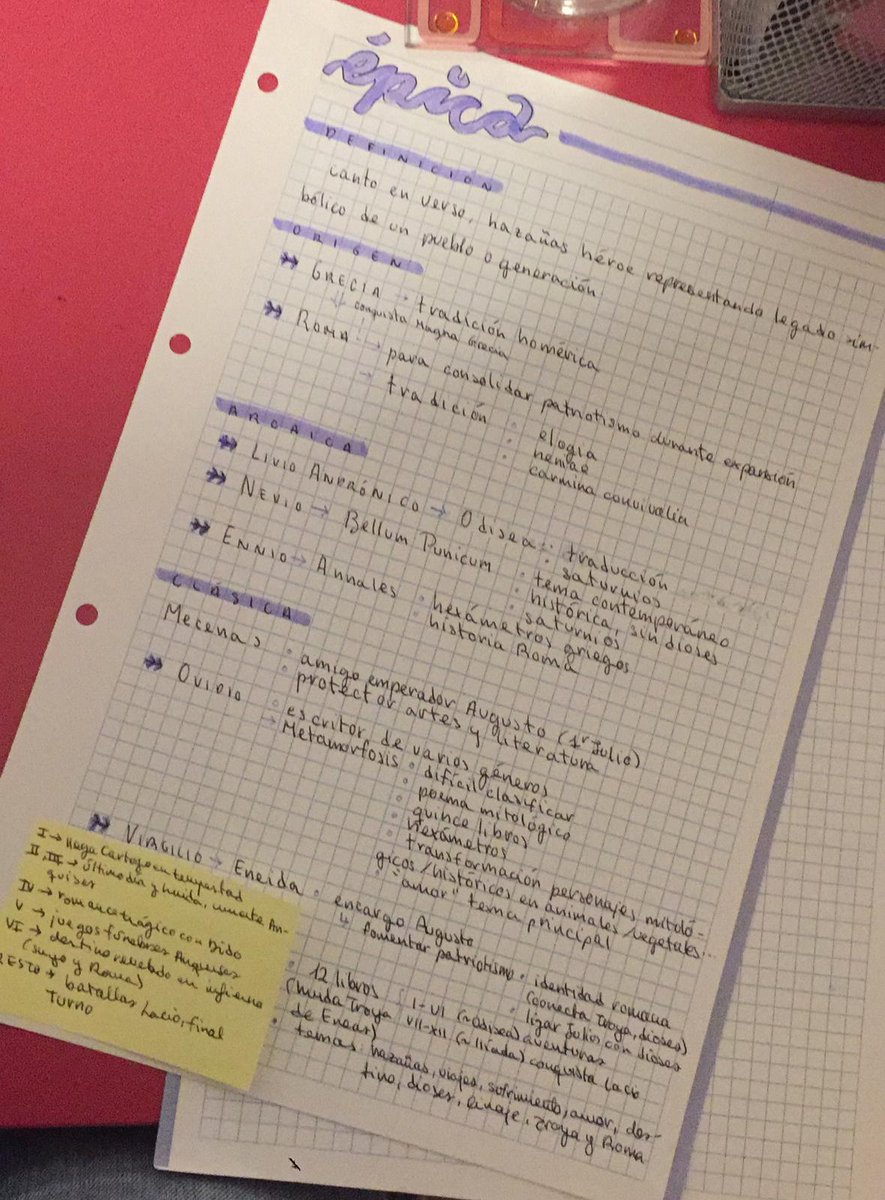 épica
DEFINICIÓN
canto en verso, hazañas héroe representando legado sim-
bólico de un pueblo o generación
ORIGEN
GRECIA → tradición homérica
↓ conquista Magna Grecia
ROMA → para consolidar patriotismo durante expansión
→ tradición · elogia
· neniae
· carmina convivalia
ARCAICA
LIVIO ANDRÓNICO → Odisea · traducción
· saturnios
NEVIO → Bellum Punicum · tema contemporáneo
· histórica, sin dioses
· saturnios
ENNIO → Annales · hexámetros griegos
· historia Roma
CLÁSICA
Mecenas · amigo emperador Augusto (1er Julio)
· protector artes y literatura
OVIDIO · escritor de varios géneros
→ Metamorfosis · difícil clasificar
· poema mitológico
· quince libros
· hexámetros
· transformación personajes mitoló-
gicos/históricos en animales/vegetales...
· "amor" tema principal
VIRGILIO → Eneida · encargo Augusto
↳ fomentar patriotismo · identidad romana
(conecta Troya, dioses)
· ligar Julios con dioses
· 12 libros I-VI (≈Odisea) aventuras
(huida Troya VII-XII (≈Ilíada) conquista Lacio
de Eneas)
· temas: hazañas, viajes, sufrimiento, amor, des-
tino, dioses, linaje, Troya y Roma
I → llega Cartago en tempestad
II, III → último día y huida, muerte An-
quises
IV → romance trágico con Dido
V → juegos fúnebres Anquises
VI → destino revelado en infierno
(suyo y Roma)
RESTO → batallas Lacio, final
Turno